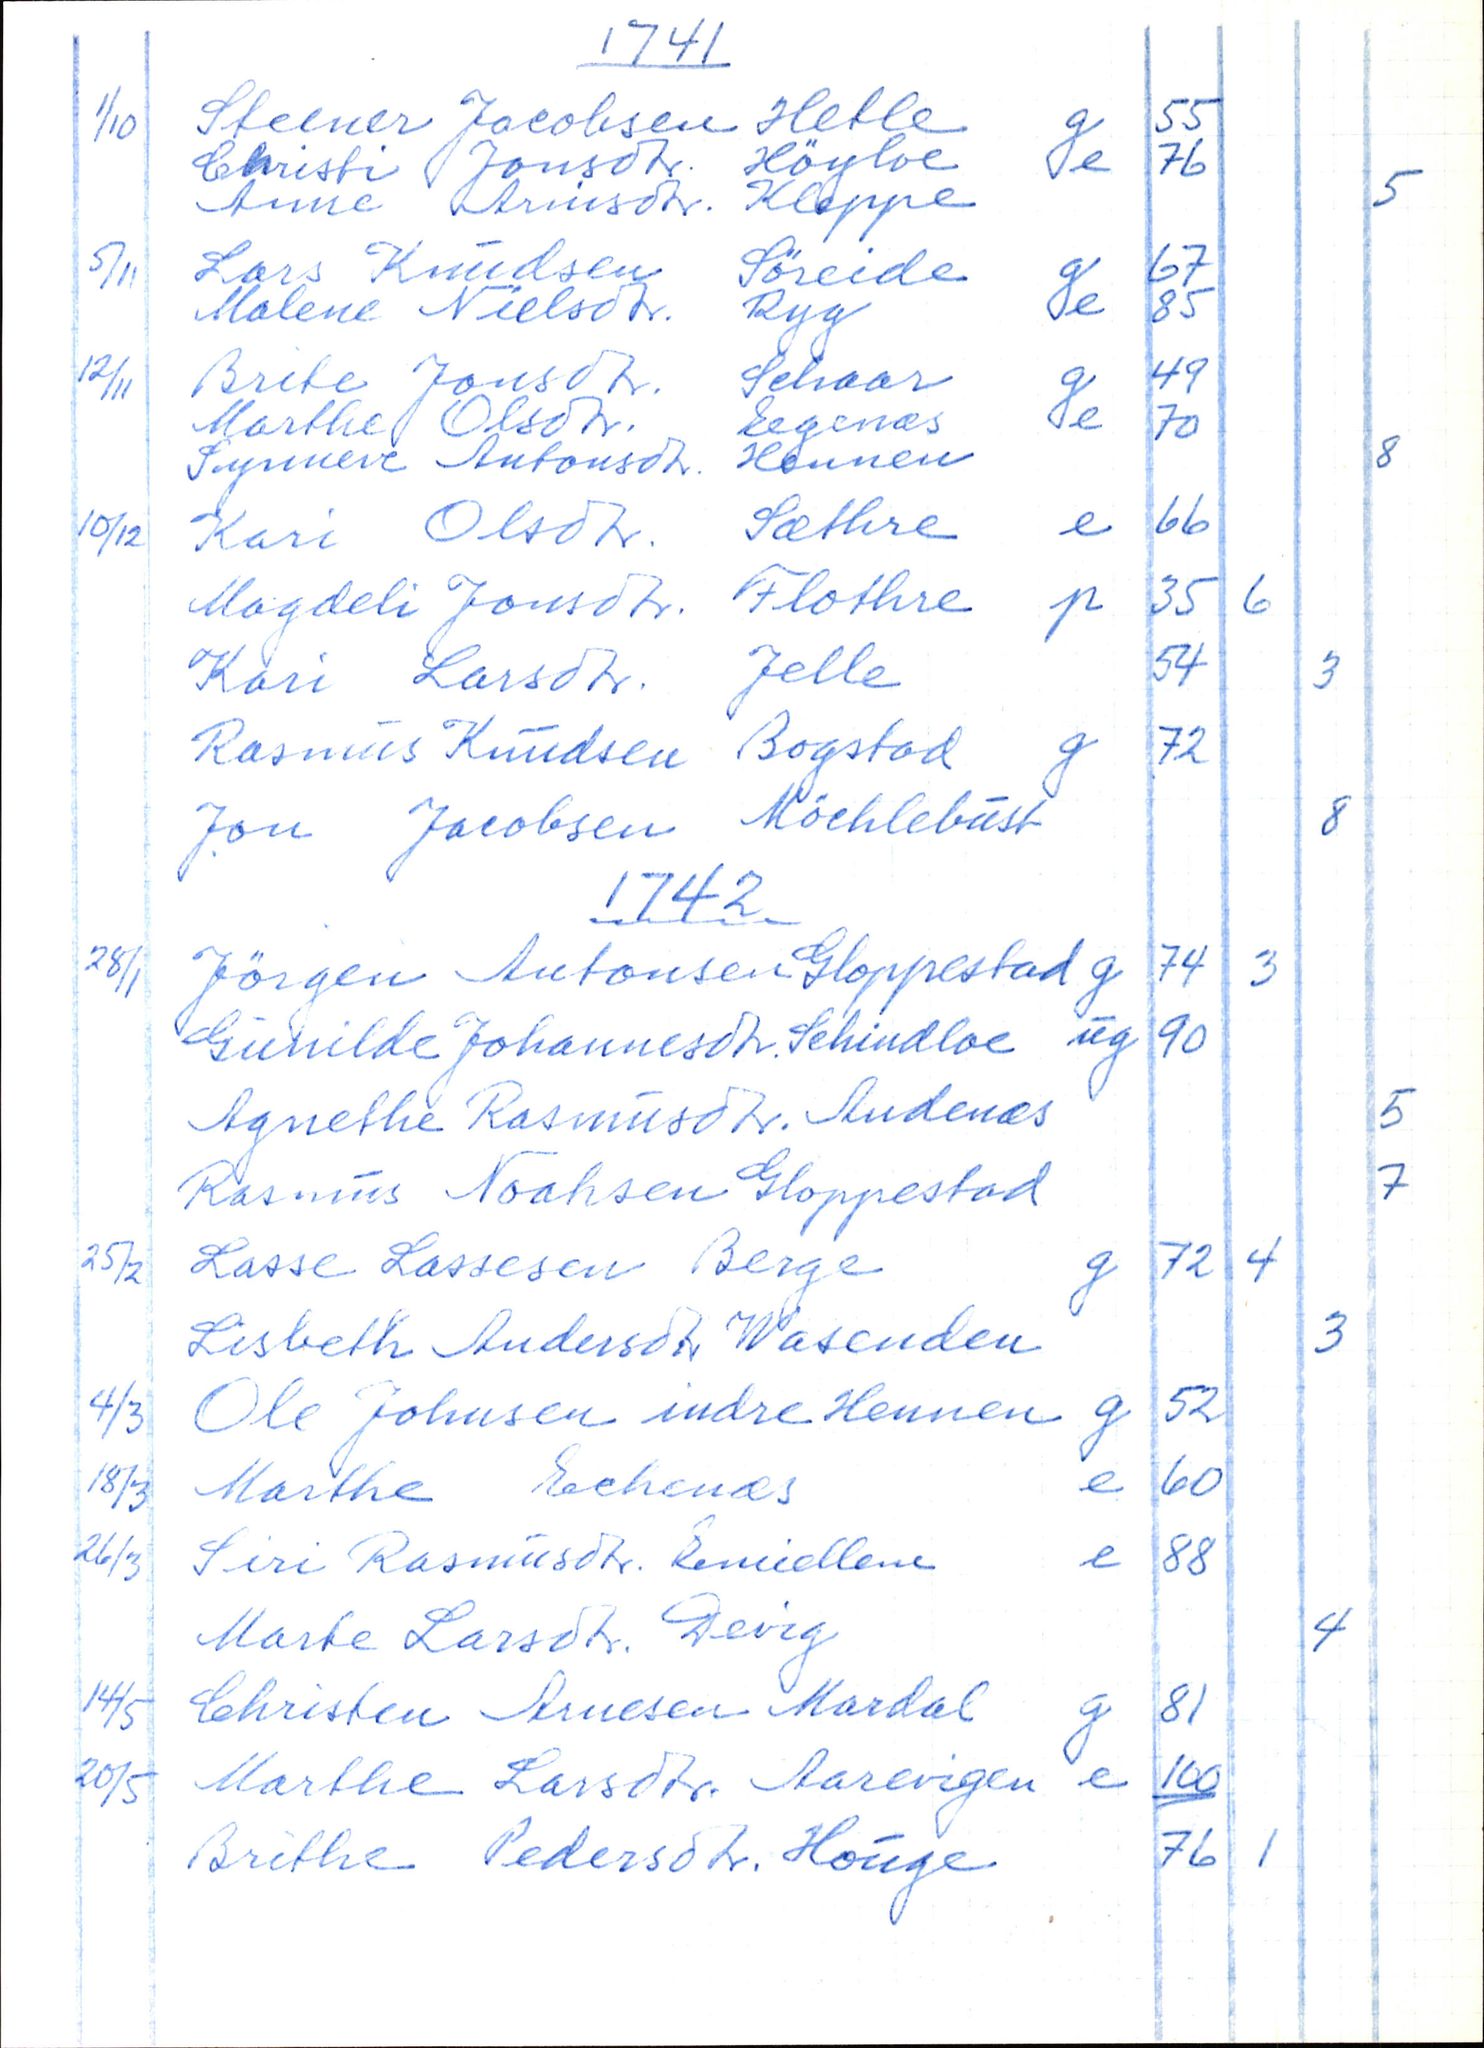 1741
1/10 Steener Jacobsen Hetle g 55
Christi Jonsdtr. Höyloe e 76
Anne Arnisdtr. Kloppe 5
5/11 Lars Knudsen Söreide g 67
Malene Nielsdtr. Ryg e 85
12/11 Brite Jonsdtr. Schaar g 49
Marthe Olsdtr. Eegenæs e 70
Synneve Antonsdtr. Hennen 8
10/12 Kari Olsdtr. Sæthre e 66
Magdeli Jonsdtr. Flothre p 35 6
Kari Larsdtr. Jelle 54 3
Rasmus Knudsen Bogstad g 72
Jon Jacobsen Möchlebust 8
1742
28/1 Jörgen Antonsen Gloppestad g 74 3
Gunilde Johannesdtr. Schindloe ug 90
Agnethe Rasmusdtr. Andenæs 5
Rasmus Noahsen Gloppestad 7
25/2 Lasse Lassesen Berge g 72 4
Lisbeth Andersdtr Wasenden 3
4/3 Ole Johnsen indre Hennen g 52
18/3 Marthe Echenæs e 60
26/3 Siri Rasmusdtr. e 88
Marte Larsdtr. Devig 4
14/5 Christen Arnesen Mardal g 81
20/5 Marthe Larsdtr. Aarevigen e 100
Brithe Pedersdtr. Houge 76 1